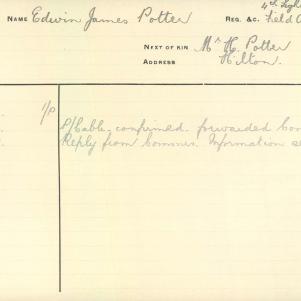 4th Light
NAME Edwin James Potter REG. &C. Field
NEXT OF KIN Mr H. Potter
ADDRESS Hilton.
1/P P/Cable confirmed forwarded
Reply from Information